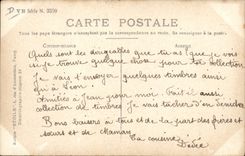 V B Série N. 3530
CARTE POSTALE
Tous les pays étrangers n'acceptent pas la correspondance au recto. Se renseigner à la poste
Correspondance
Adresse
Quels sont les dirigeables que tu as que je vois
si je trouve quelque chose pour ta collection
Je vais t'envoyer quelques timbres ainsi
que Léon
Amitiés à Jean pour moi. Fait-il aussi
collection de timbres. Je vais tâcher d'en
Bons baisers à tous de la part des frères et
sœurs et de Maman
ta cousine
Dédée